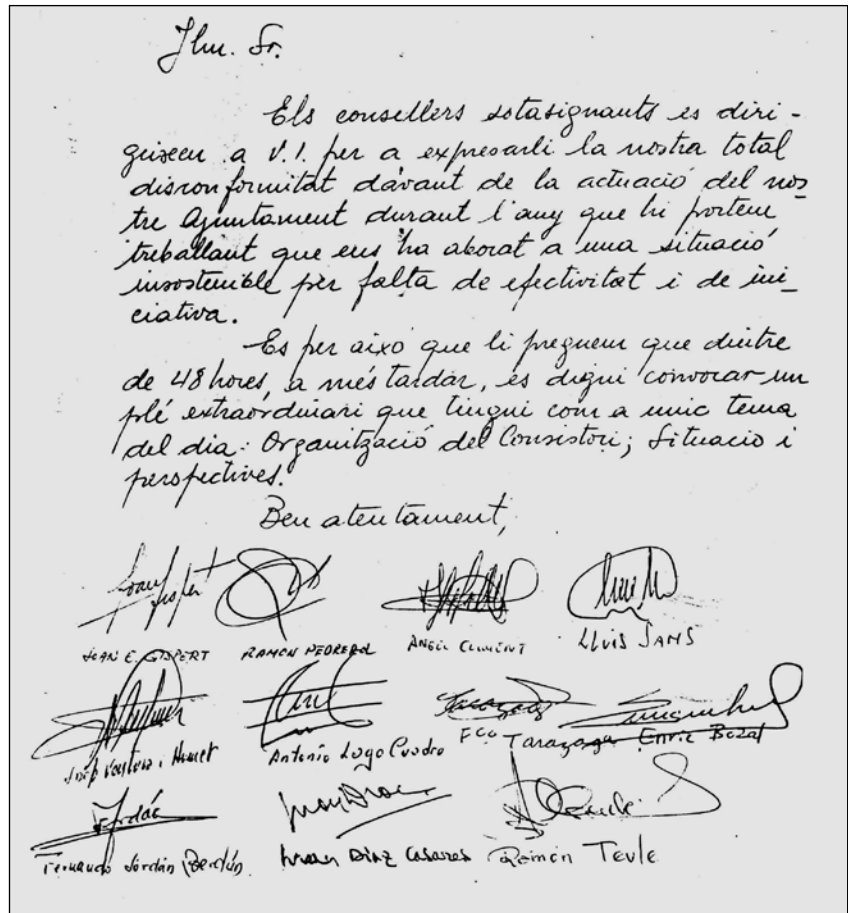 Ilm. Sr.
Els consellers sotasignants es diri-
guixen a V.I. per a expresarli la nostra total
disconformitat davant de la actuació del nos-
tre Ajuntament durant l'any que hi portem
treballant que ens ha abocat a una situació
insostenible per falta de efectivitat i de ini-
ciativa.
Es per aixó que li preguem que dintre
de 48 hores, a més tardar, es digni convocar un
plé extraordinari que tingui com a unic tema
del dia: Organització del Consistori; Situacio i
perspectives.
Ben atentament,
JOAN E. GISPERT RAMON PEDREROL ANGEL CLIMENT LLUIS SAMS
Josep Ventura i Humet Antonio Lago Cuadro Fco Tarazaga Enric Bozal
Fernando Jordán Berdún Juan Diaz Casares Ramón Teule